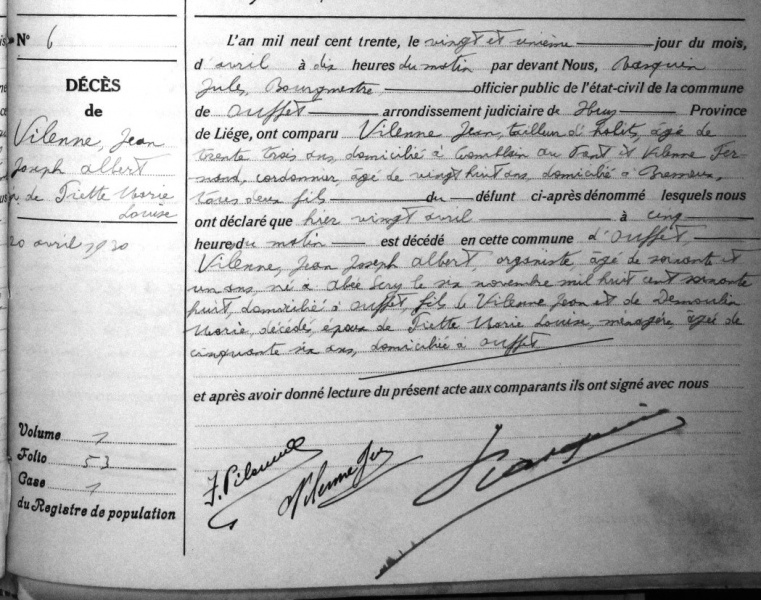 N° 6
DÉCÈS
de
Vilenne, Jean
Joseph Albert
de Piette Marie
Louise
20 avril 1930
Volume 1
Folio 53
Case 1
du Registre de population
L'an mil neuf cent trente, le vingt et unième jour du mois,
d'avril à dix heures du matin par devant Nous,
Jules, Bourgmestre officier public de l'état-civil de la commune
de Ouffet arrondissement judiciaire de Huy Province
de Liége, ont comparu Vilenne Jean, tailleur d'habits, âgé de
trente trois ans, domicilié à Comblain au Pont et Vilenne Fer
nand, cordonnier, âgé de vingt huit ans, domicilié à Bressoux,
tous deux fils du défunt ci-après dénommé lesquels nous
ont déclaré que hier vingt avril à cinq
heures du matin est décédé en cette commune d'Ouffet
Vilenne, Jean Joseph Albert, organiste, âgé de soixante et
un ans, né à Abée Scry le six novembre mil huit cent soixante
huit, domicilié à Ouffet, fils de Vilenne Jean et de Desmoulin
Marie, décédés, époux de Piette Marie Louise, ménagère, âgée de
cinquante six ans, domiciliée à Ouffet
et après avoir donné lecture du présent acte aux comparants ils ont signé avec nous
F. Vilenne
Vilenne Jean